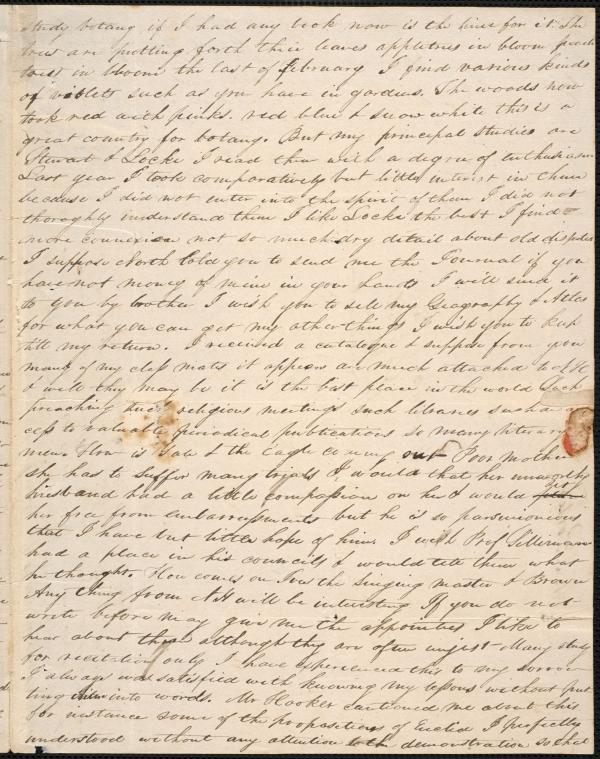 study botany if I had any book now is the time for it The
trees are putting forth their leaves appletrees in bloom peach
trees in bloom the last of February I find various kinds
of violets such as you have in gardens. The woods now
look red with pinks. red blue & snow white this is a
great country for botany. But my principal studies are
Stewart & Locke I read them with a degree of enthusiasm
Last year I took comparatively but little interest in them
because I did not enter into the spirit of them I did not
thoroghly understand them I like Locke the best I find
more connexion not so much dry detail about old disputes
I suppose North told you to send me the Journal if you
have not money of mine in your hands I will send it
to you by brother I wish you to sell my Geography & Atlas
for what you can get my other things I wish you to keep
till my return. I received a catalogue I suppose from you
many of my class mates it appears are much attached to N H
& well they may be it is the best place in the world such
preaching such religious meetings such libraries such
cess to valuable periodical publications so many literary
men. How is & the Eagle coming out Poor mother
she has to suffer many trials I would that her unworthy
husband had a little compassion on her I would set
her free from embarassments but he is so parsimonious
that I have but little hope of him. I wish Prof Silliman
had a place in his councils & would tell them what
he thought. How comes on Ives the singing master & Brown
Any thing from N H will be interesting If you do not
write before may give me the appointees I like to
hear about them although they are often unjest Many study
for recitation only I have experienced this to my sorrow
I always was satisfied with knowing my lessons without put
ting them into words. Mr Hooker cautioned me about this
for instance some of the propositions of Euclid I perfectly
understood without any attention to the demonstration so that